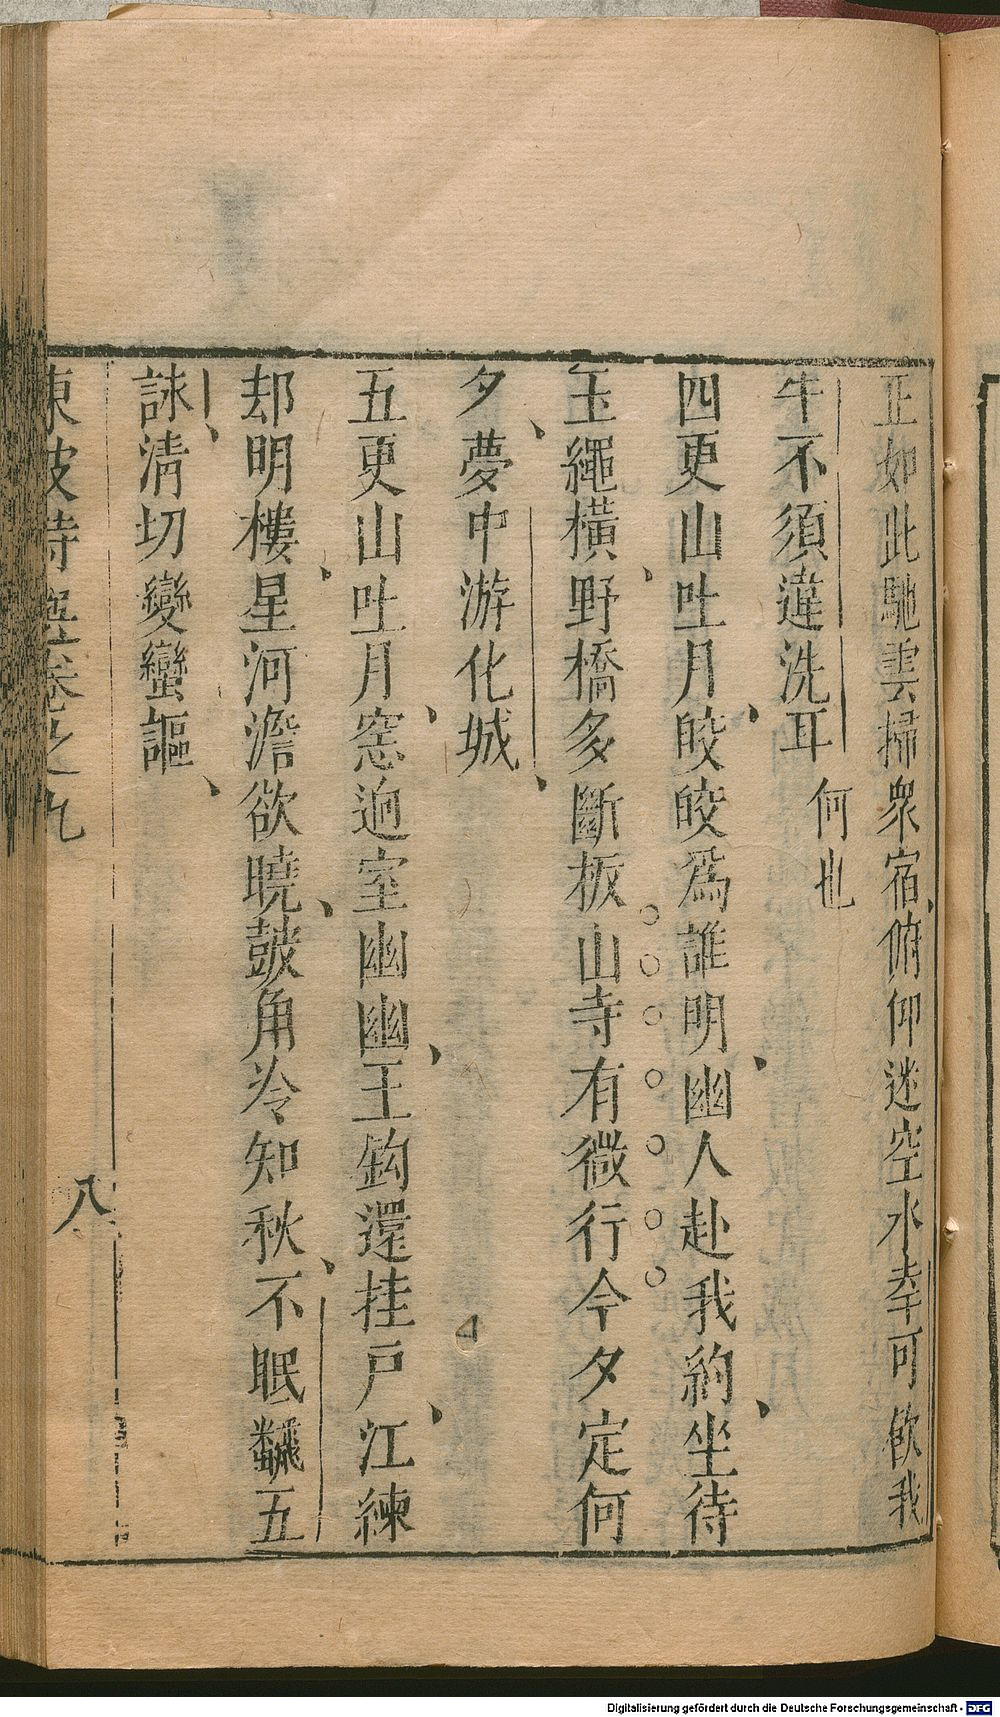 正如此馳雲掃衆宿俯仰迷空水幸可飮我
牛不須違洗耳 何也
四更山吐月皎皎爲誰明幽人赴我約坐待
玉繩橫野橋多斷板山寺有微行今夕定何
夕夢中游化城
五更山吐月窓逈室幽幽玉鈎還挂戸江練
却明樓星河澹欲曉皷角冷知秋不眠翻五
詠清切變蠻謳
東坡詩選卷之九
八
Digitalisierung gefördert durch die Deutsche Forschungsgemeinschaft - DFG